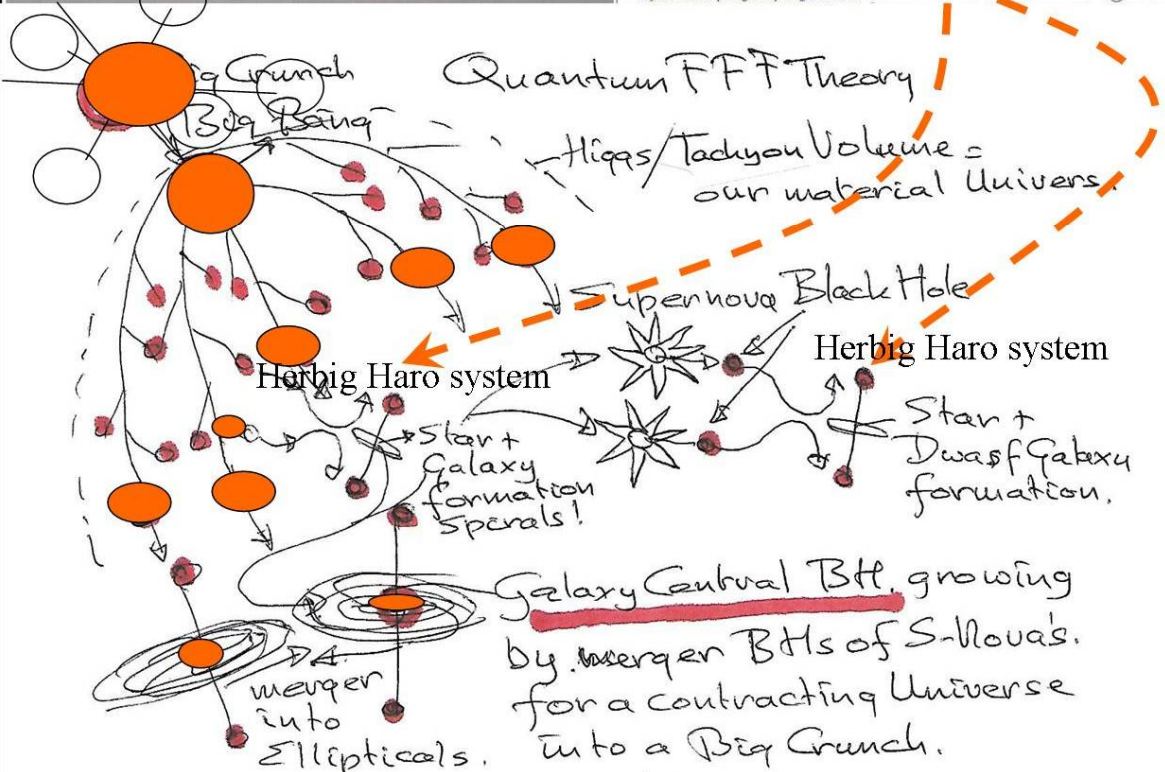 Big Crunch
Big Bang
Quantum FFF Theory
Higgs/Tachyon Volume =
our material Univers.
Supernova Black Hole
Herbig Haro system
Herbig Haro system
Star +
Galaxy
formation
Spirals!
Star +
Dwarf Galaxy
formation.
Galaxy Central BH. growing
by merger BHs of S-Nova's.
for a contracting Universe
into a Big Crunch.
merger
into
Ellipticals.